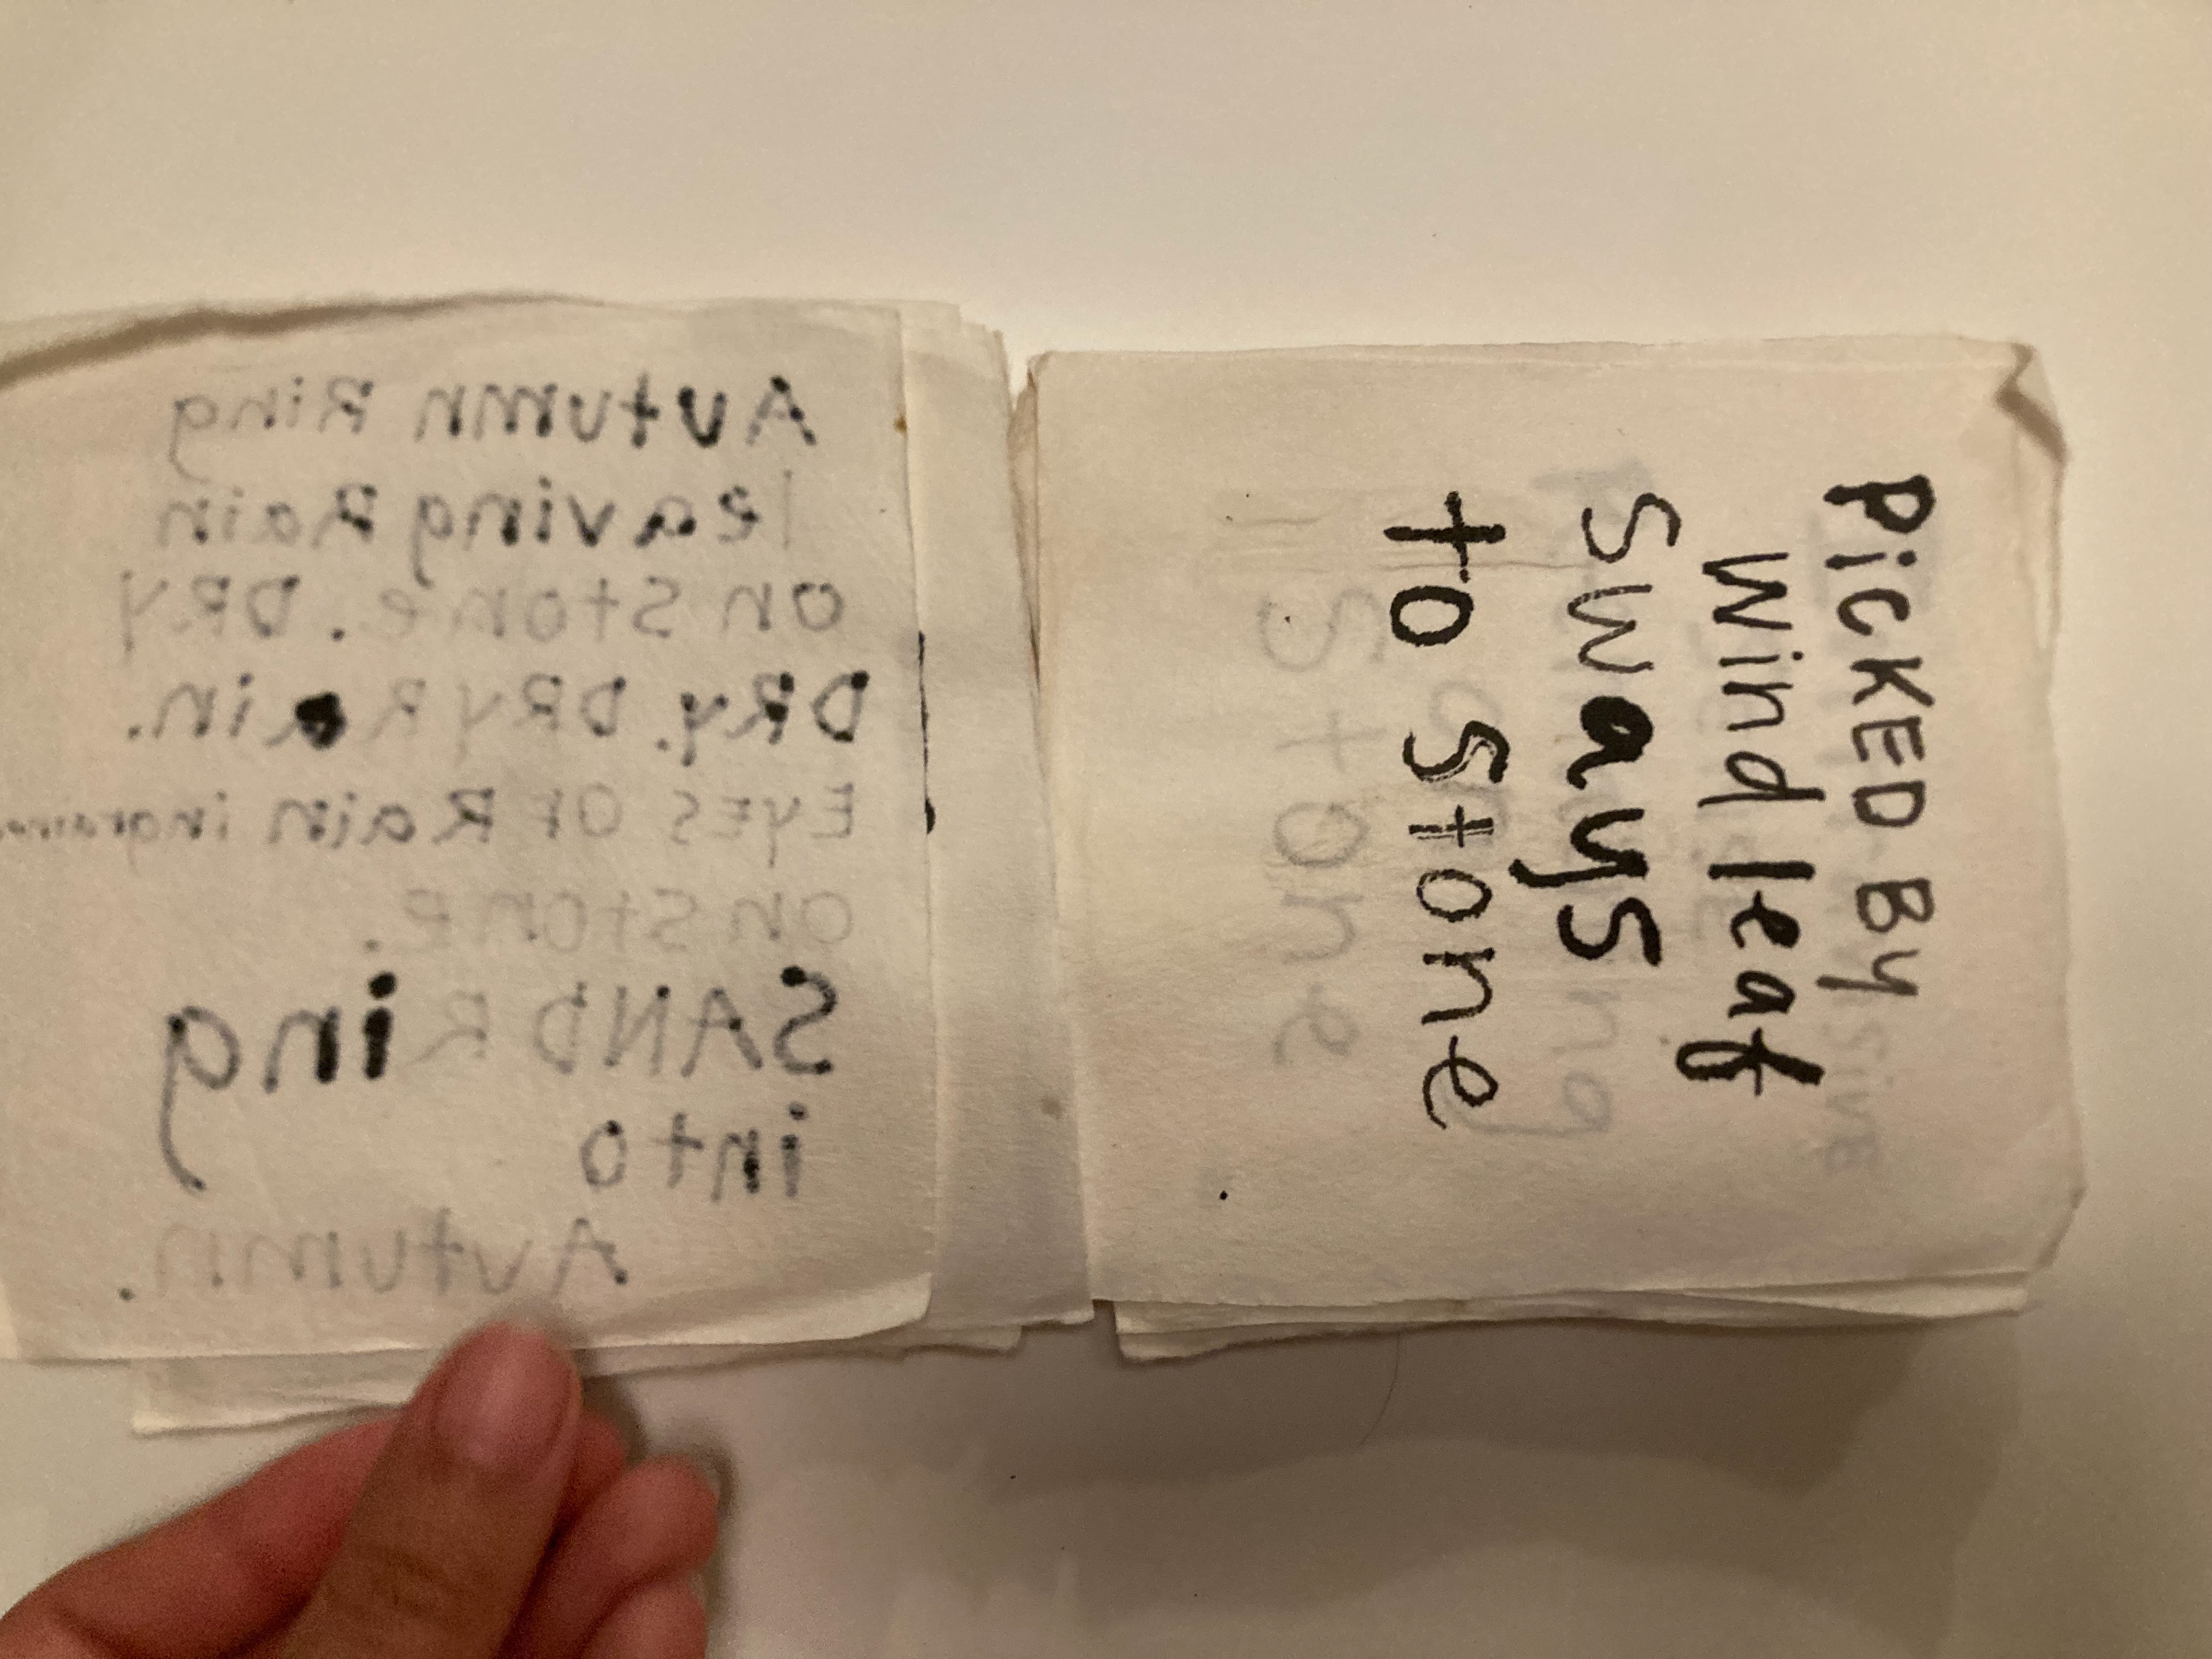 Autumn Ring
leaving Rain
on Stone. DRY
DRy. DRy Rain.
EyES OF Rain
on Stone.
SAND Ring
into
Autumn.
PiCKED By
Wind leaf
Sways
to Stone
Stone